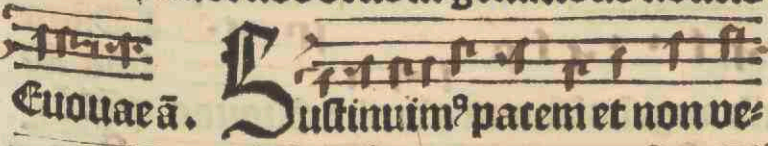 Euouae ā. Sustinuimꝰ pacem et non ve⸗